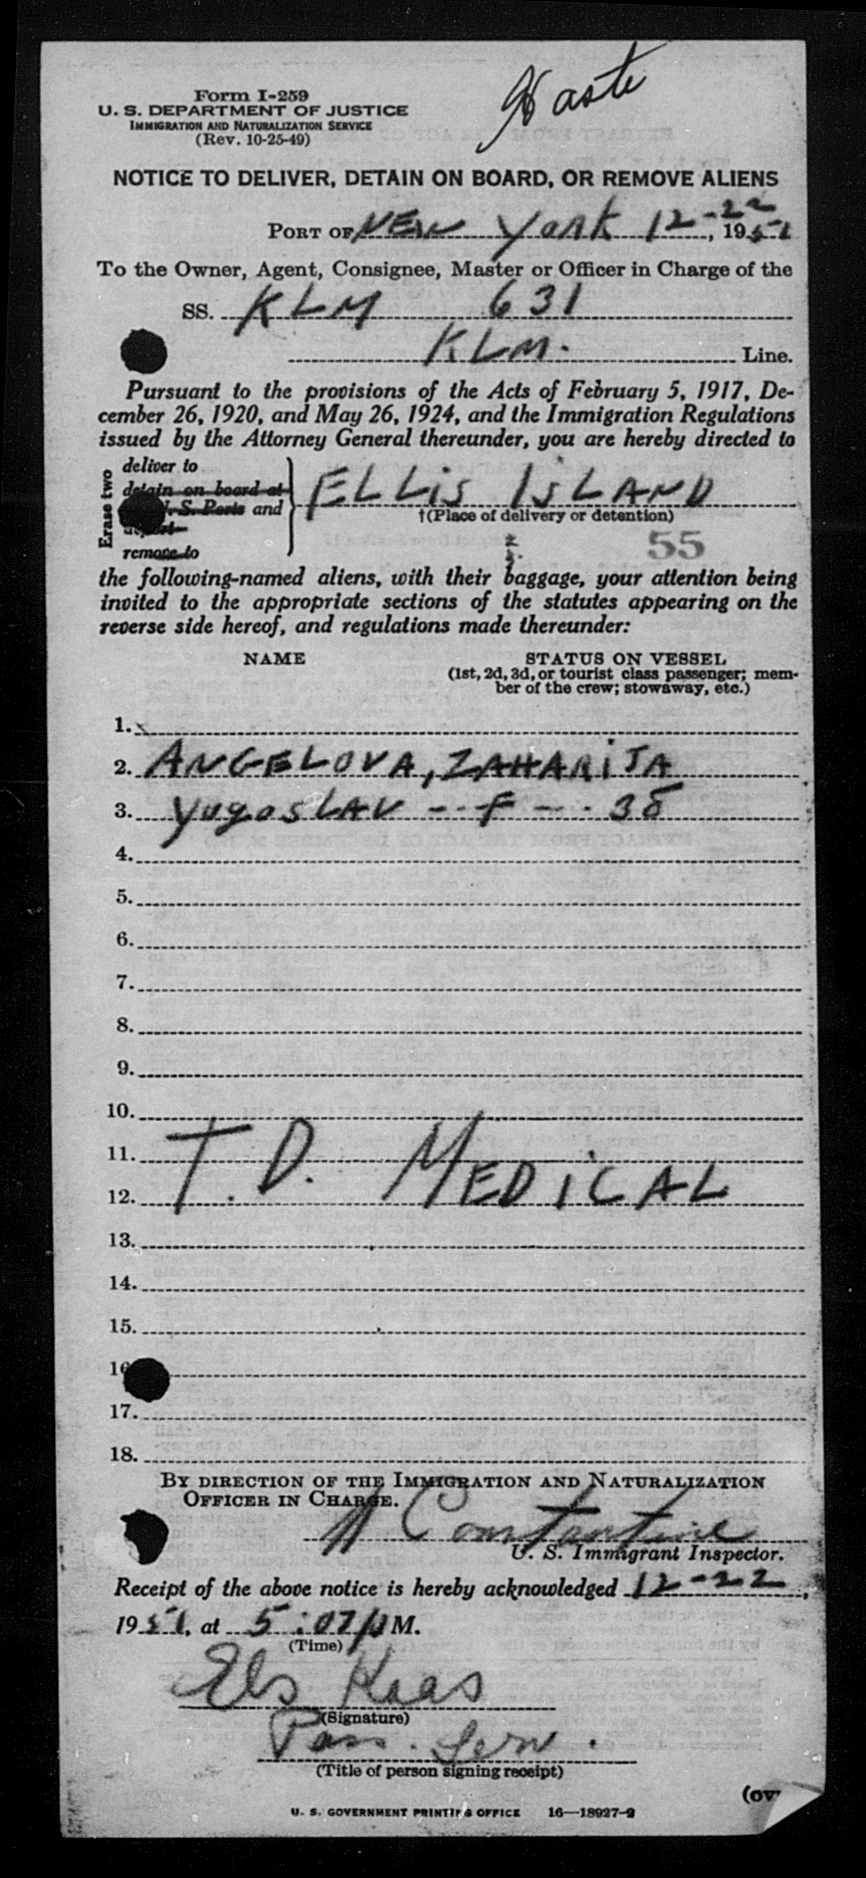 Haste
Form I-259
U. S. DEPARTMENT OF JUSTICE
IMMIGRATION AND NATURALIZATION SERVICE
(Rev. 10-25-49)
NOTICE TO DELIVER, DETAIN ON BOARD, OR REMOVE ALIENS
PORT OF NEW York 12-22, 1951
To the Owner, Agent, Consignee, Master or Officer in Charge of the
SS. KLM 631
KLM. Line.
Pursuant to the provisions of the Acts of February 5, 1917, De-
cember 26, 1920, and May 26, 1924, and the Immigration Regulations
issued by the Attorney General thereunder, you are hereby directed to
Erase two
deliver to
detain on board at
S. Ports and
remove to
ELLIS ISLAND
†(Place of delivery or detention)
55
the following-named aliens, with their baggage, your attention being
invited to the appropriate sections of the statutes appearing on the
reverse side hereof, and regulations made thereunder:
NAME STATUS ON VESSEL
(1st, 2d, 3d, or tourist class passenger; mem-
ber of the crew; stowaway, etc.)
1.
2. ANGELOVA, ZAHARIJA
3. Yugoslav - - F - - 38
4.
5.
6.
7.
8.
9.
10.
11.
12. T. D. MEDICAL
13.
14.
15.
16
17.
18.
BY DIRECTION OF THE IMMIGRATION AND NATURALIZATION
OFFICER IN CHARGE.
Constantine
U. S. Immigrant Inspector.
Receipt of the above notice is hereby acknowledged 12-22,
1951, at 5:07 P M.
(Time)
Els Kaas
(Signature)
Pass. Serv.
(Title of person signing receipt)
(ov
U. S. GOVERNMENT PRINTING OFFICE 16—18927-2